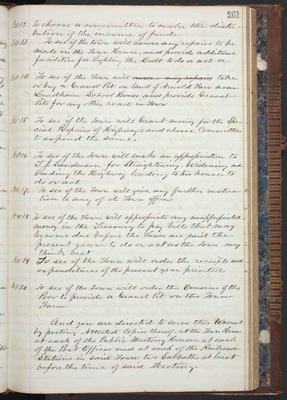 261
No 12. To choose a committee to make the distri-
bution of the income of funds
No 13. To see if the town will cause any repairs to be
made on the Town House, and provide additional
facilities for Lighting the Hall to do or act &c
No 14. To see if the Town will take
or buy a Gravel Pit on land of Arnold Fare near
School House and provide Gravel
Pit for any other road in Town
No 15. To see if the Town will Grant money for the Spe-
cial Repairs of Highways and choose Committee
to expend the same.
No 16. To see if the Town will make an appropriation to
Sanderson for Straightening, Widening and
Grading the Highway leading to his house to
do or act
No 17. To see if the Town will give any further instruc-
tion to any of its Town officers
No 18. To see if the Town will appropriate any unappropriated
money in the Treasury to pay bills that may
become due before the taxes are paid the
present year to do or act as the Town may
think best
No 19. To see if the Town will order the receipts and
expenditures of the present year printed
No 20. To see if the Town will order the Overseers of the
Poor to provide a Gravel Pit on the Town
Farm
And you are directed to serve this Warrant
by posting Attested Copies thereof, at the Town House
at each of the Public Meeting Houses, at each
of the Post Offices and at each of the Railroad
Stations in said Town two Sabbaths at least
before the time of said Meeting.